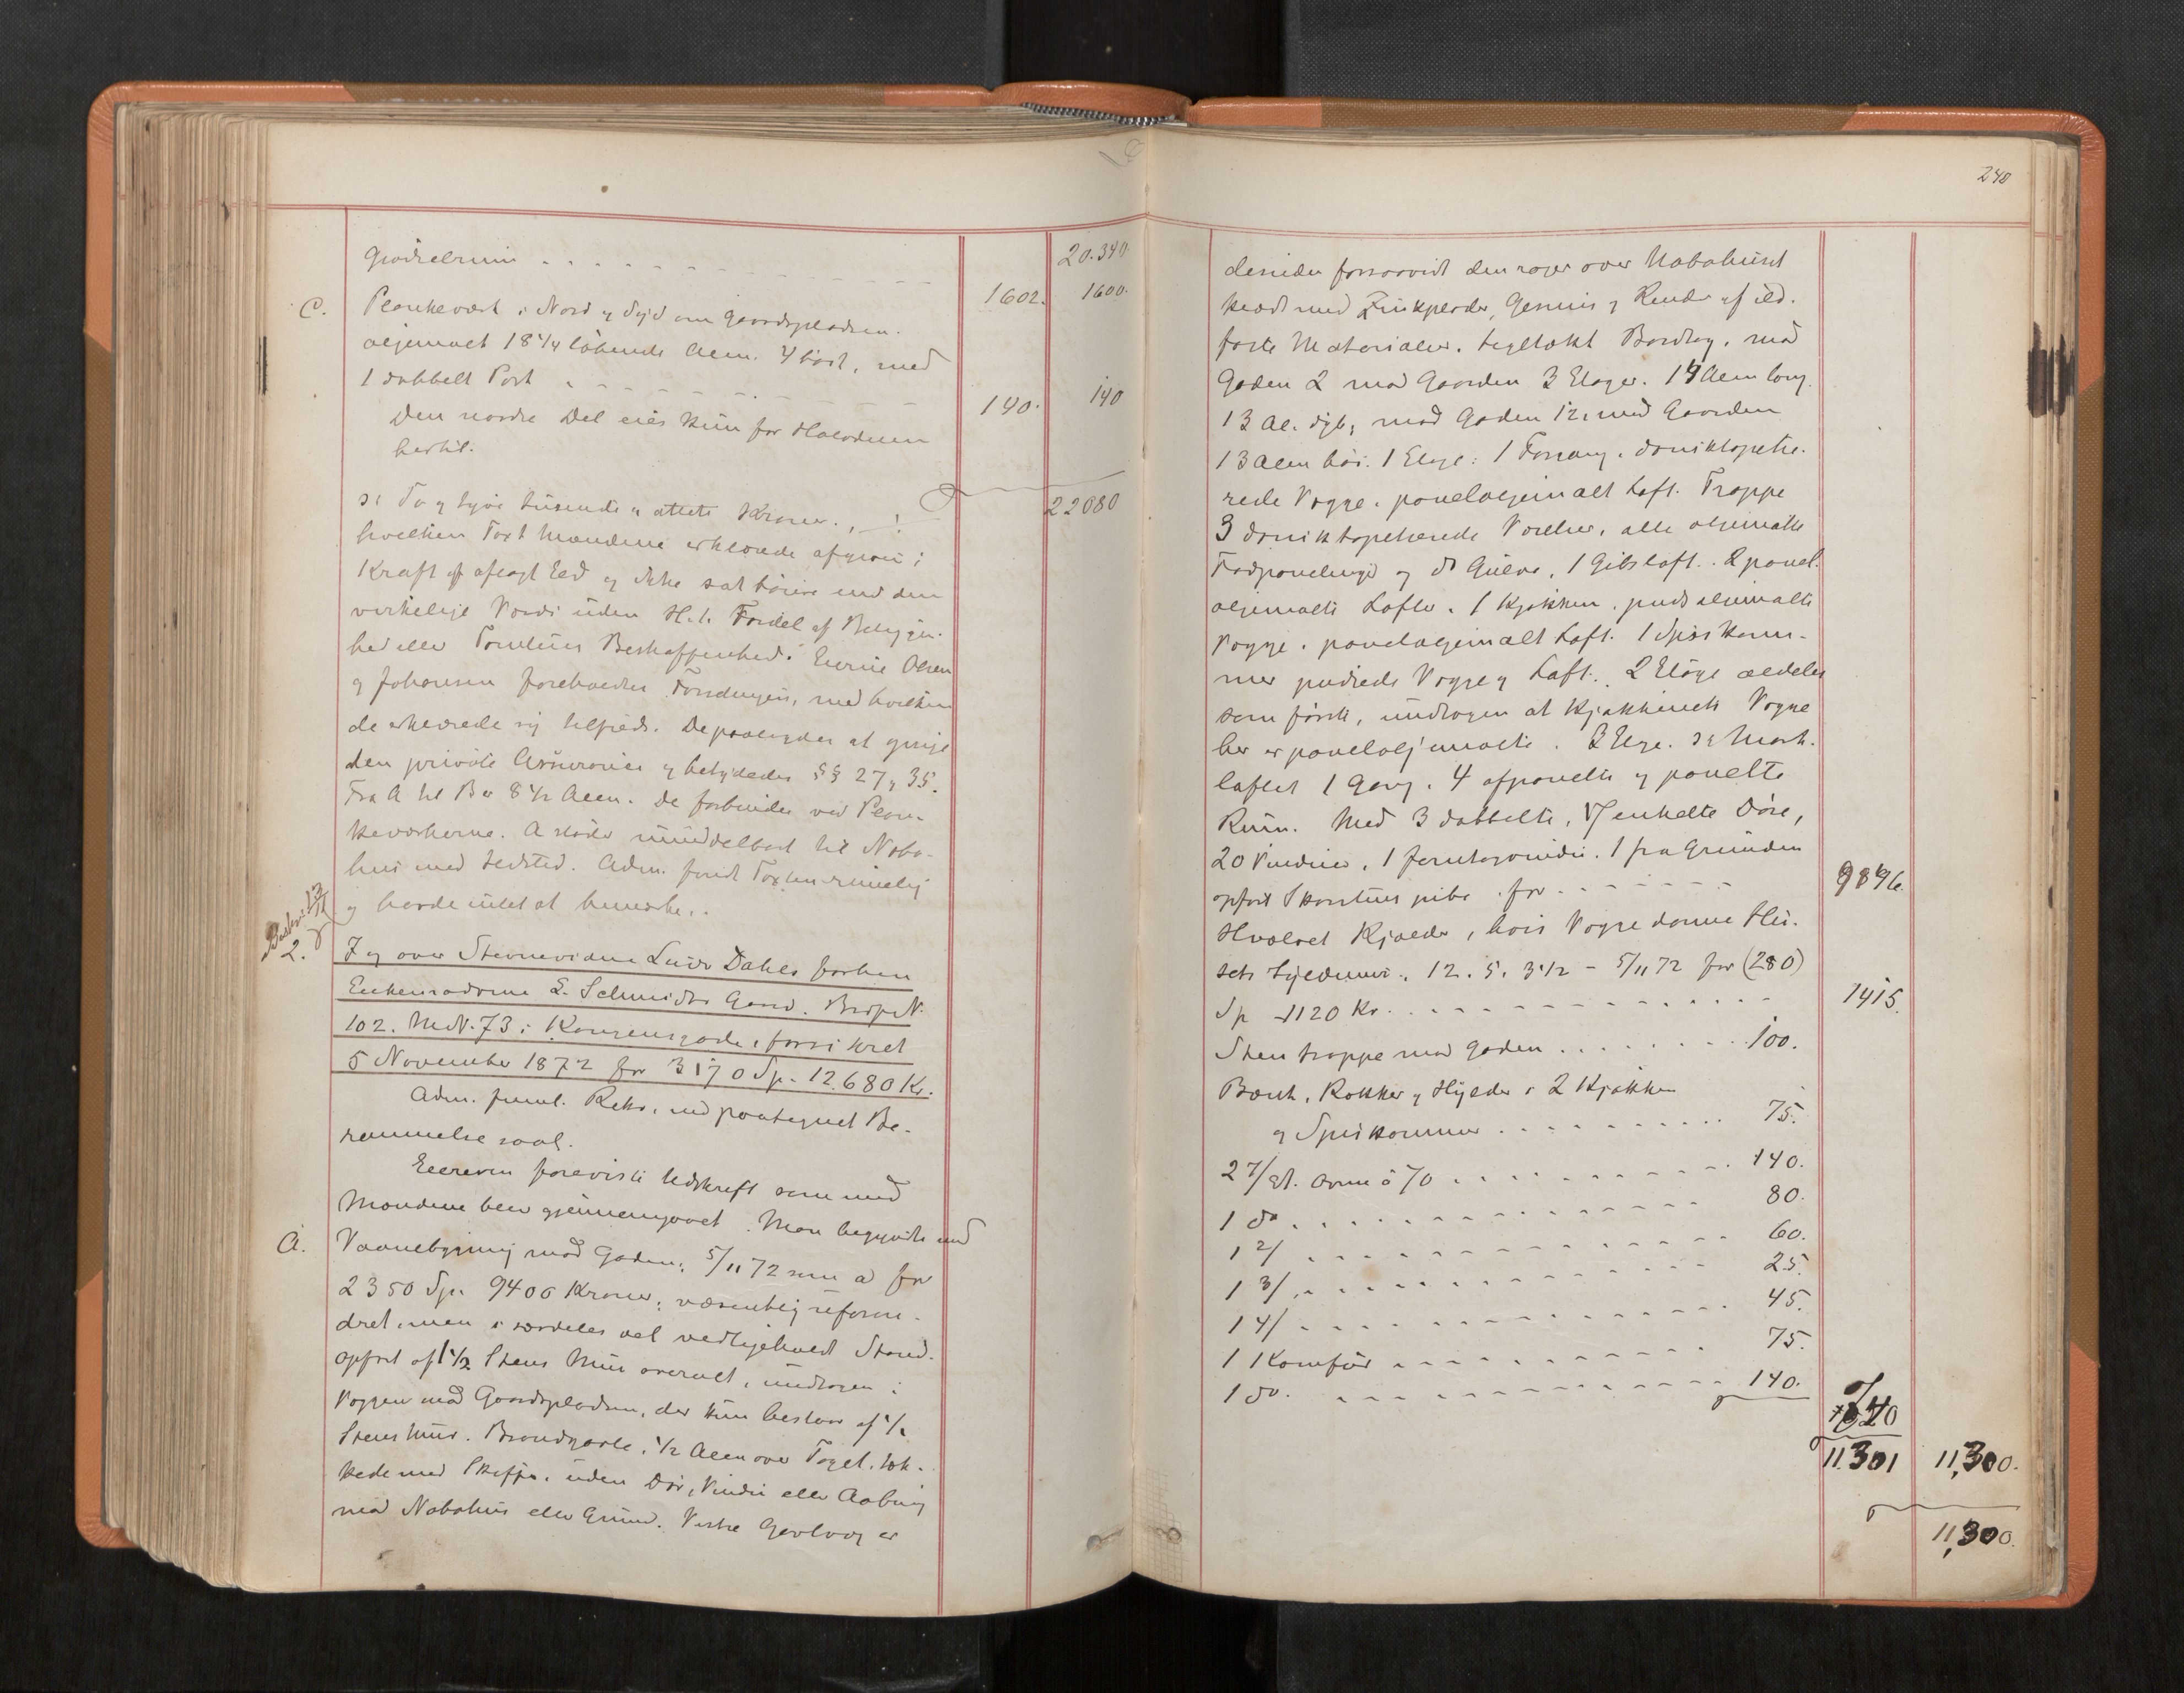 240
20.340.
C. Plankeværk i Nord og Syd om Gaardspladsen. 1602. 1600.
oljemalt 18 1/4 løbende Alen. 4 høit, med
1 dobbelt Port 140. 140
Den nordre Del eies kun for Halvdelen
hertil.
22080
To og tyve tusende og otteti Kroner,
hvilken Taxt Mændene erklærede afgiven i
Kraft af aflagt Eed og ikke sat høiere end den
virkelige Værdi uden H. t. Fordel af Beliggen-
hed eller Tomtens Beskaffenhed. Eierne Olsen
og Johansen foreholdtes Forsikringen, med hvilken
de erklærede sig tilfreds. De paalagdes at opsige
den private Assurance og betydedes §§ 27 og 35.
Fra A til B er 8 1/2 Alen. De forbindes ved Plan-
keværkerne. A støder umiddelbart til Nabo-
hus med Ildsted. Adm. fandt Taxten rimelig
og havde intet at bemærke.
2. Dahls forhen
Enkemadame L. Schmidts Gaard. Brdp. N.
102. M. N. 73 i Kongensgade, forsikret
5 November 1872 for 3170 Sp. 12.680 Kr.
Adm. freml. Rekv. med paategnet Be-
rammelse saal.
Eieren foreviste Udskrift som med
Mændene blev gjennemgaaet. Man begyndte med
A. Vaanebygning mod Gaden, 5/11 72 som a for
2350 Sp. 9400 Kroner, væsentlig uforan-
dret, men i særdeles vel vedligeholdt Stand.
opført af 1 1/2 Stens Mur overalt, undtagen i
Væggen mod Gaardspladsen, der kun bestaar af 1/2
Stens Mur. Brandgavle, 1/2 Alen over Taget, tæk-
kede med Skifer, uden Dør, Vindu eller Aabning
mod Nabohus eller Grund. Vestre Gavlvæg er
desuden forsaavidt den rager over Nabohuset
klædt med Zinkplader, Gesims og Render af ild-
faste Materialier. tegltækt Bordtag. mod
Gaden 2 mod Gaarden 3 Etager. 19 Alen lang
13 Al. dyb, mod Gaden 12, mod Gaarden
13 Alen høi. 1 Etage: 1 Forgang, donsktapetse-
rede Vægge, paneloljemalt Loft. Trappe
3 donsktapetserede Værelser, alle oljemalte
Fodpanelinger og do Gulve, 1 Gibsloft. 2 panel-
oljemalte Lofter. 1 Kjøkken, puds oljemalte
Vægge, paneloljemalt Loft. 1 Spiskam-
mer pudsede Vægge og Loft. 2 Etage aldeles
som første, undtagen at Kjøkkenets Vægge
her er paneloljemalte. 3 Etge. Mørk-
loftet 1 Gang. 4 afpanelte og panelte
Rum. Med 3 dobbelte, 17 enkelte Døre,
20 Vinduer, 1 Jerntagvindu. 1 fra Grunden
opført Skorstenspibe for 9896.
Hvælvet Kjælder, hvis Vægge danne Hu-
sets Kjeldmur. 12. 5. 3 1/2 - 5/11 72 for (280)
Sp 1120 Kr. 1415.
Stentrappe mod Gaden 100.
Bænk, Rækker og Hylder i 2 Kjøkken
og Spiskammer 75.
2 7/ Et. Ovne à 70 140.
1 do 80.
1 2/ 60.
1 3/ 25.
1 4/ 45.
1 Komfur 75.
1 do. 140.
11301 11,300.
11,300.